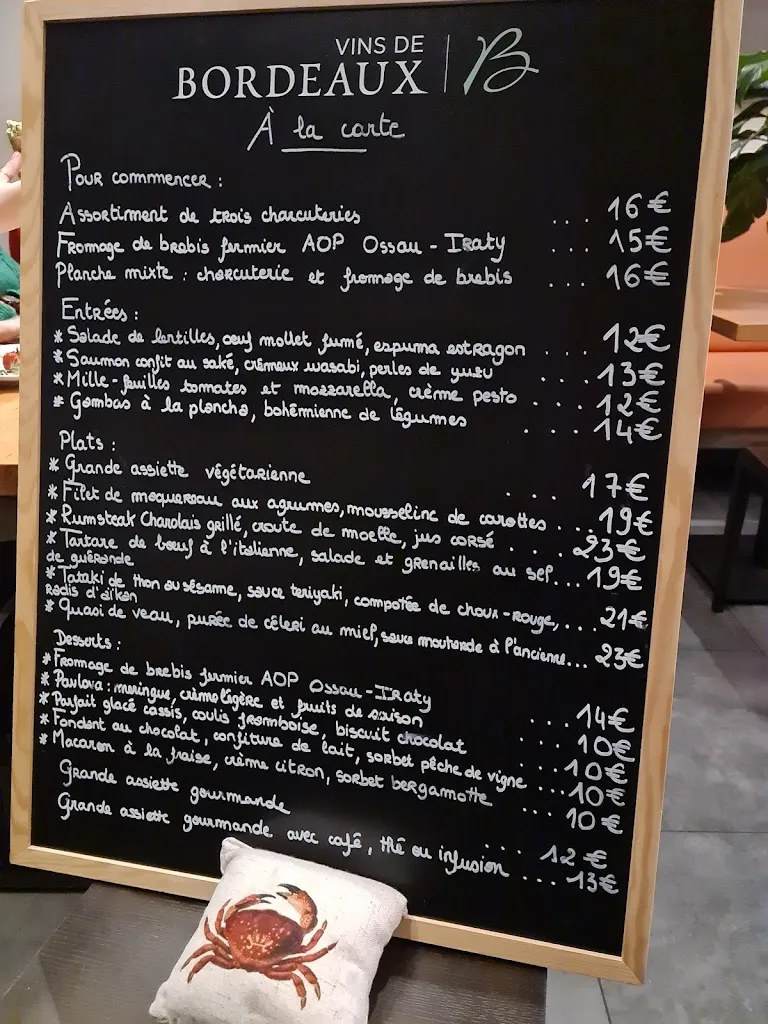 VINS DE
BORDEAUX B
À la carte
Pour commencer :
Assortiment de trois charcuteries ... 16€
Fromage de brebis fermier AOP Ossau-Iraty ... 15€
Planche mixte : charcuterie et fromage de brebis ... 16€
Entrées :
* Salade de lentilles, oeuf mollet fumé, espuma estragon .... 12€
* Saumon confit au saké, crémeux wasabi, perles de yuzu .... 13€
* Mille-feuilles tomates et mozzarella, crème pesto ... 12€
* Gambas à la plancha, bohémienne de légumes .... 14€
Plats :
* Grande assiette végétarienne .... 17€
* Filet de maquereau aux agrumes, mousseline de carottes ... 19€
* Rumsteak Charolais grillé, croute de moelle, jus corsé .... 23€
* Tartare de boeuf à l'italienne, salade et grenailles au sel... 19€
de guérande
* Tataki de thon au sésame, sauce teriyaki, compotée de choux-rouge,... 21€
Radis d'aïkon
* Quasi de veau, purée de céleri au miel, sauce moutarde à l'ancienne... 23€
Desserts :
* Fromage de brebis fermier AOP Ossau-Iraty ... 14€
* Pavlova : meringue, crème légère et fruits de saison .... 10€
* Parfait glacé cassis, coulis framboise, biscuit chocolat ... 10€
* Fondant au chocolat, confiture de lait, sorbet pêche de vigne ... 10€
* Macaron à la fraise, crème citron, sorbet bergamotte 10€
Grande assiette gourmande .... 12€
Grande assiette gourmande avec café, thé ou infusion .... 13€